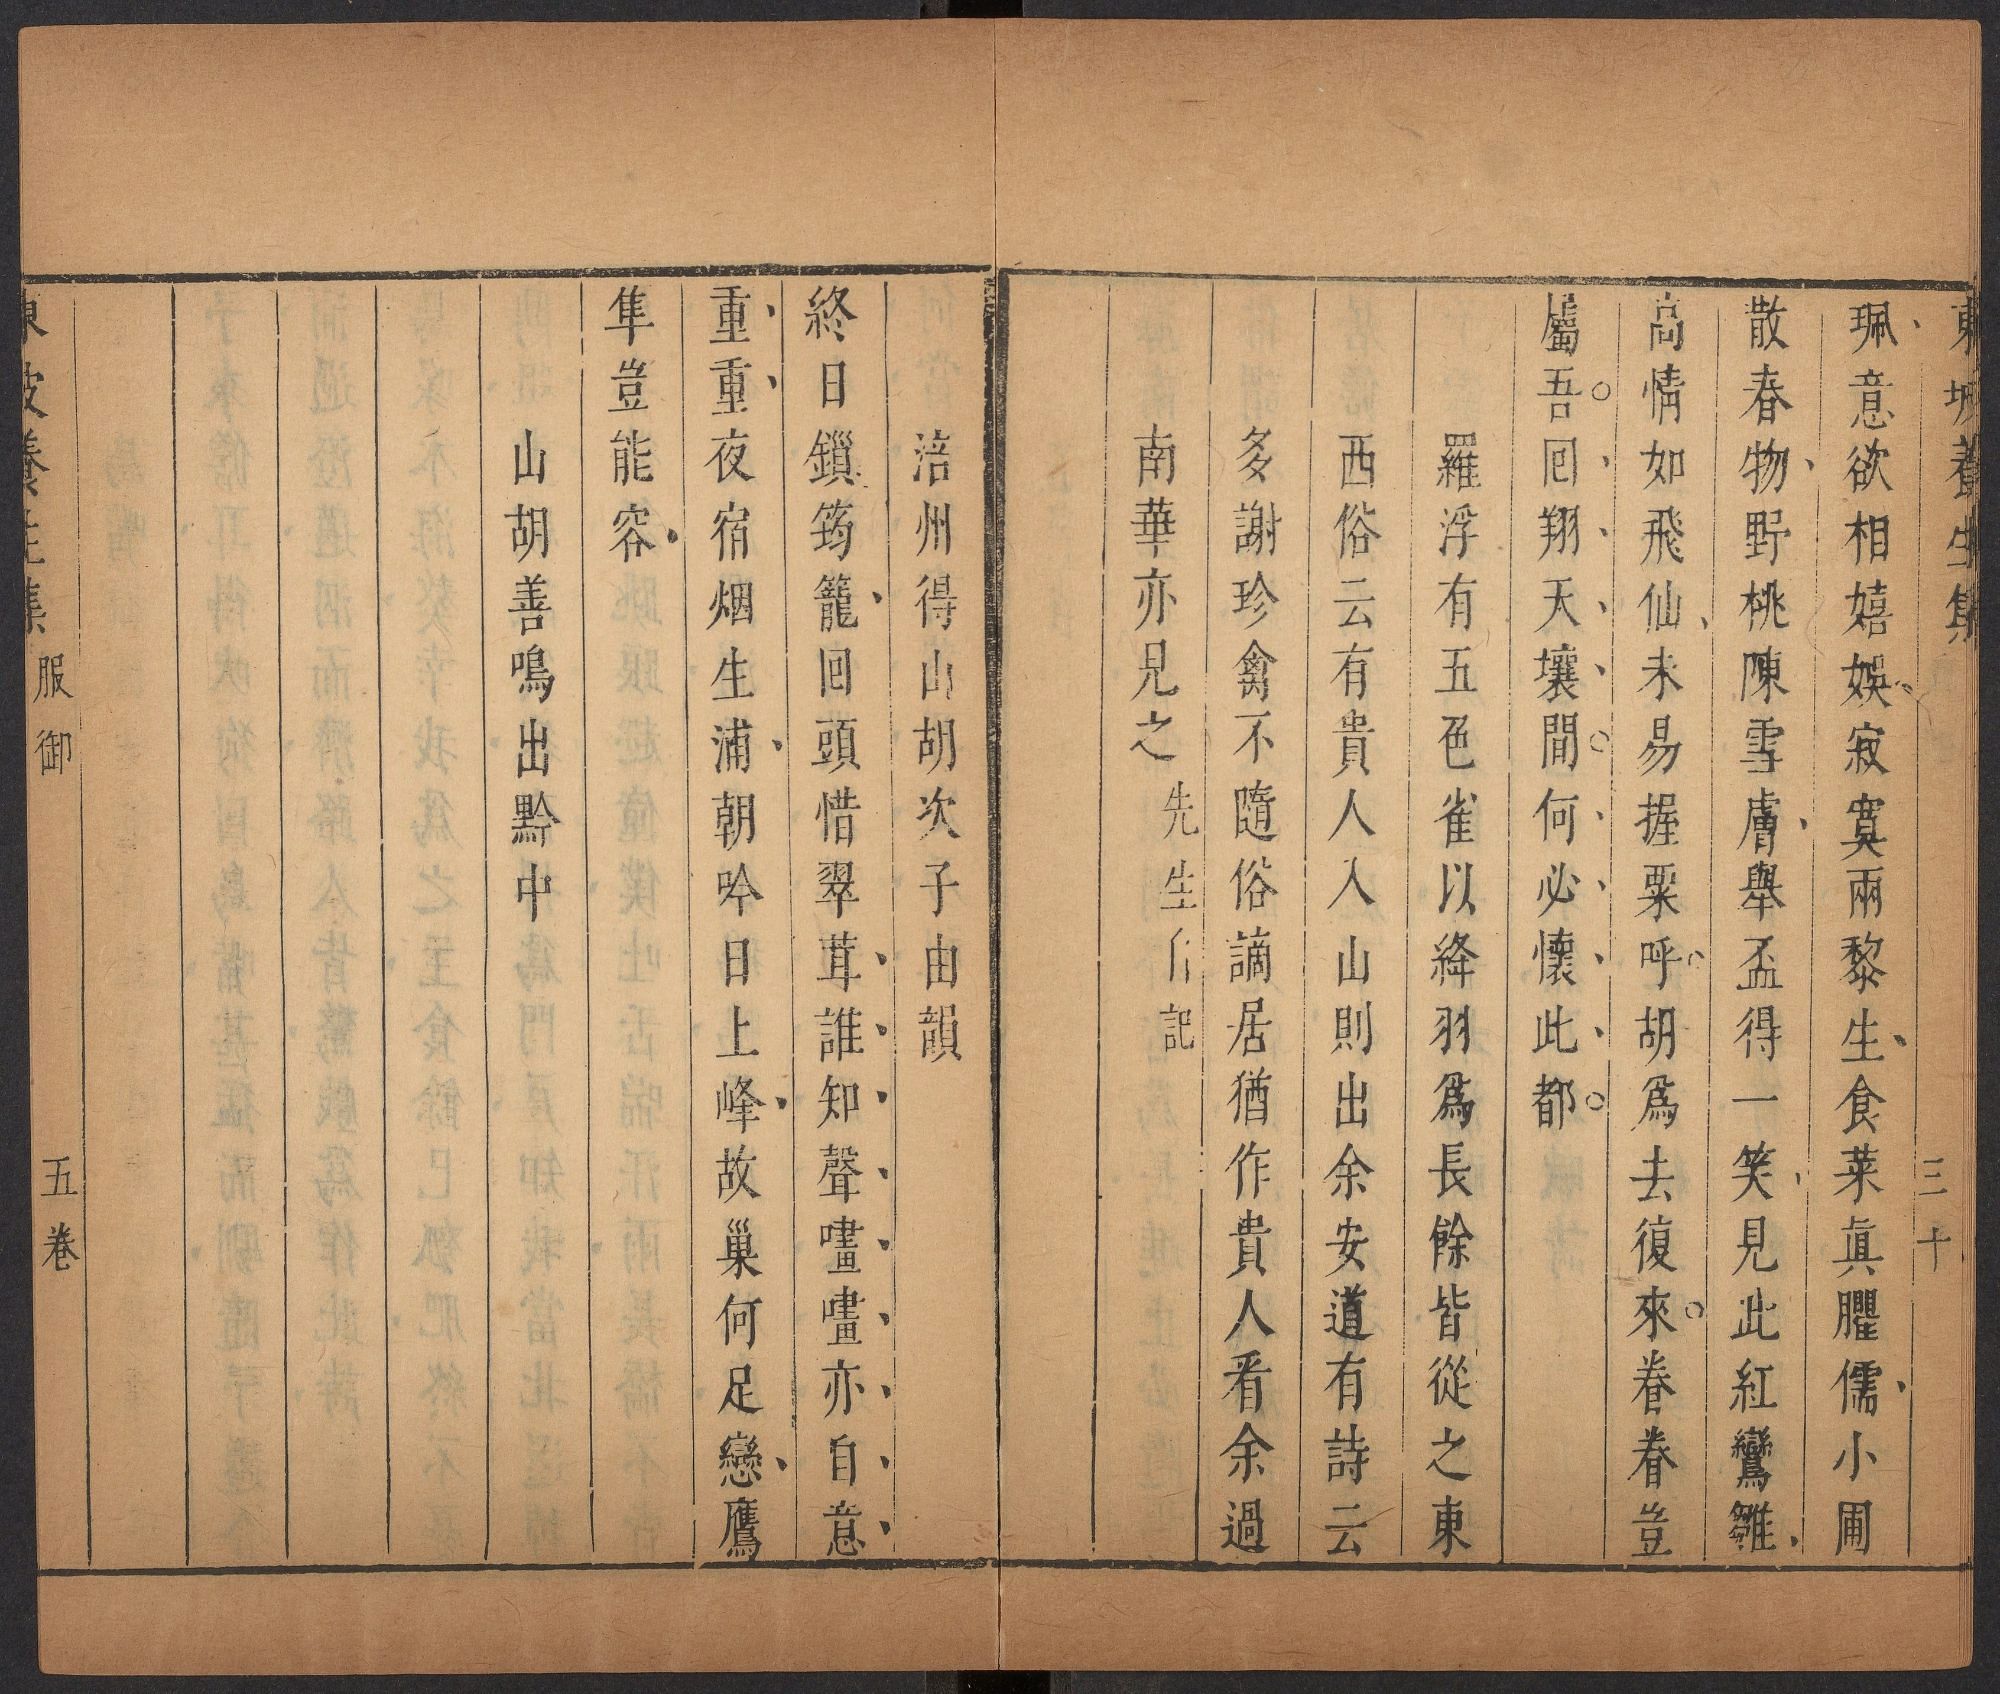 東坡養生集 三十
珮意欲相嬉娛寂寞兩黎生食菜眞臞儒小圃
散春物野桃陳雪膚舉盃得一笑見此紅鸞雛
高情如飛仙未易握粟呼胡爲去復來眷眷豈
屬吾回翔天壤間何必懷此都
羅浮有五色雀以絳羽爲長餘皆從之東
西俗云有貴人入山則出余安道有詩云
多謝珍禽不隨俗謫居猶作貴人看余過
南華亦見之先生自記
涪州得山胡次子由韻
終日鎻筠籠回頭惜翠茸誰知聲嘒嘒亦自意
重重夜宿烟生浦朝吟日上峰故巢何足戀鷹
隼豈能容
山胡善鳴出黔中
東坡養生集 服御 五卷